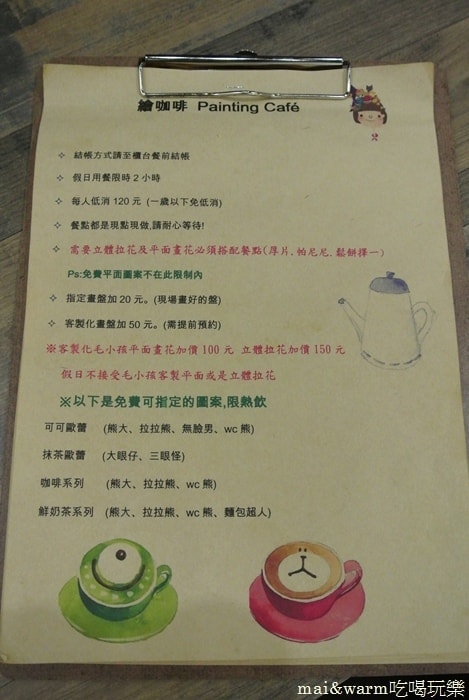 繪咖啡 Painting Café
✧ 結帳方式請至櫃台餐前結帳
✧ 假日用餐限時2小時
✧ 每人低消120元 (一歲以下免低消)
✧ 餐點都是現點現做,請耐心等待!
✧ 需要立體拉花及平面畫花必須搭配餐點(厚片.帕尼尼.鬆餅擇一)
Ps:免費平面圖案不在此限制內
✧ 指定畫盤加20元。(現場畫好的盤)
✧ 客製化畫盤加50元。(需提前預約)
※客製化毛小孩平面畫花加價100元 立體拉花加價150元
假日不接受毛小孩客製平面或是立體拉花
※以下是免費可指定的圖案,限熱飲
可可歐蕾 (熊大、拉拉熊、無臉男、wc熊)
抹茶歐蕾 (大眼仔、三眼怪)
咖啡系列 (熊大、拉拉熊、wc熊)
鮮奶茶系列 (熊大、拉拉熊、wc熊、麵包超人)
mai&warm吃喝玩樂